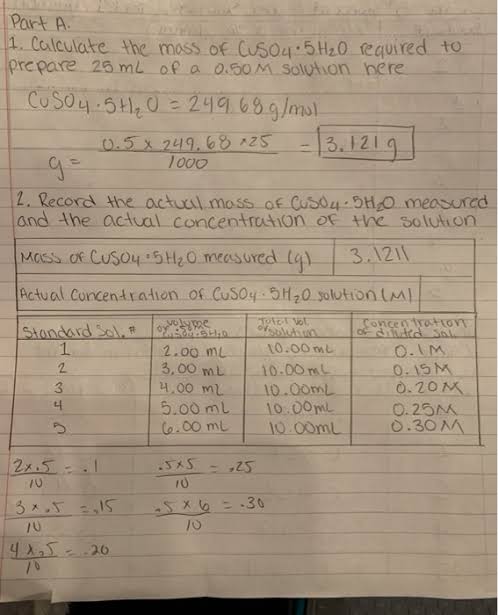 Part A.
1. Calculate the mass of CuSO4·5H2O required to
prepare 25mL of a 0.50M solution here
CuSO4·5H2O = 249.68g/mol
g = 0.5 × 249.68 × 25 / 1000 = 3.121g
2. Record the actual mass of CuSO4·5H2O measured
and the actual concentration of the solution
Mass of CuSO4·5H2O measured (g) 3.1211
Actual Concentration of CuSO4·5H2O solution (M)
Standard Sol. # Volume of CuSO4·5H2O Total Vol of solution Concentration of diluted Sol.
1 2.00 mL 10.00mL 0.1M
2 3.00 mL 10.00mL 0.15M
3 4.00 mL 10.00mL 0.20M
4 5.00 mL 10.00mL 0.25M
5 6.00 mL 10.00mL 0.30M
2×.5/10 = .1 .5×5/10 = .25
3×.5/10 = .15 .5×6/10 = .30
4×.5/10 = .20